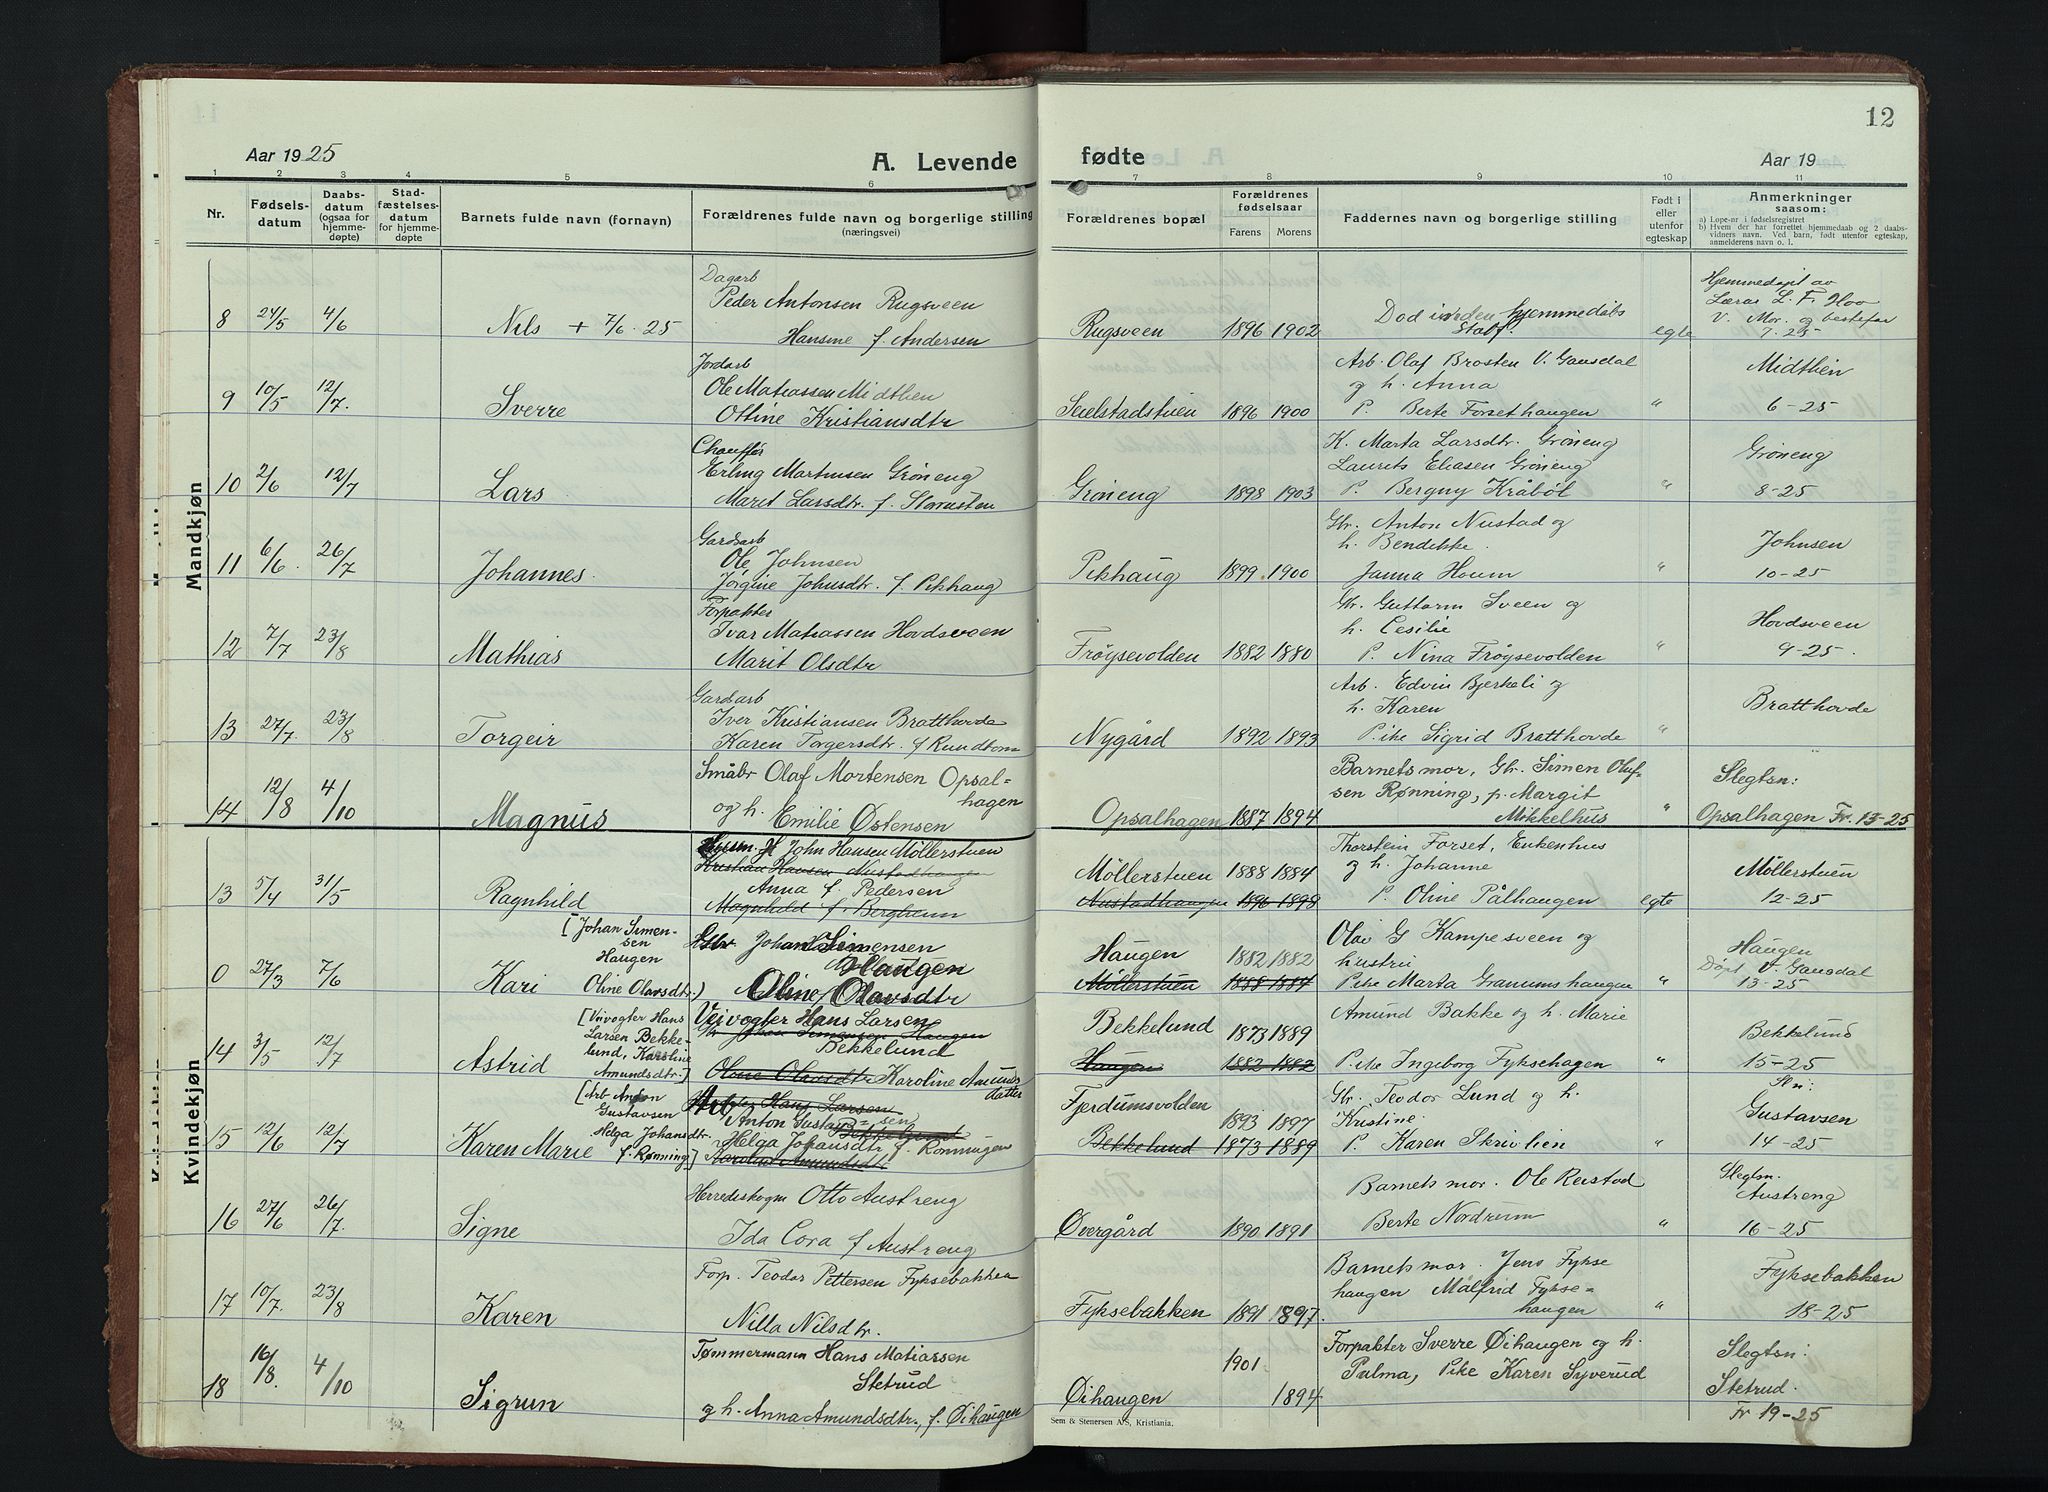 12
Aar 1925
A. Levende
fødte
Aar 19
1 2 3 4 5 6 7 8 9 10 11
Nr.
Fødsels-
datum
Daabs-
datum
(ogsaa for
hjemme-
døpte)
Stad-
fæstelses-
datum
for hjemme-
døpte
Barnets fulde navn (fornavn)
Forældrenes fulde navn og borgerlige stilling
(næringsvei)
Forældrenes bopæl
Forældrenes
fødselsaar
Farens Morens
Faddernes navn og borgerlige stilling
Født i
eller
utenfor
egteskap
Anmerkninger
saasom:
a) Løpe-nr i fødselsregistret
b) Hvem der har forrettet hjemmedaab og 2 daabs-
vidners navn. Ved barn, født utenfor egteskap,
anmelderens navn o. l.
Mandkjøn
8 24/5 4/6 Nils + 7/6. 25
Dagarb
Peder Antonsen Rugsveen
Hansine f. Andersen
Rugsveen 1896 1902
Död inden hjemmedåbs
Stadf.
egte
Hjemmedøpt av
Lærer L. F. Hov
V. Mor. og bestefar
7-25
9 10/5 12/7. Sverre
Jordarb
Ole Matiassen Midtlien
Ottine Kristiansdtr
Seielstadstuen 1896 1900
Arb. Olaf Brosten V. Gausdal
og h. Anna
P. Berte Forsethaugen "
Midtlien
6-25
10 2/6 12/7 Lars
Chauffør
Erling Martinsen Grôneng
Marit Larsdtr. f. Stornsten
Grôneng 1898 1903
K. Marta Larsdtr. Grôneng
Laurits Eliasen Grôneng
P. Bergny Kråböl "
Grôneng
8-25
11 6/6. 26/7 Johannes.
Gardsarb
Ole Johnsen
Jørgine Johnsdtr. f. Pikhaug
Pikhaug 1899. 1900
Gbr. Anton Nustad og
h. Bendikke.
Janna Houm "
Johnsen
10-25
12 7/7 23/8 Mathias
Forpakter
Ivar Matiassen Hovdsveen
Marit Olsdtr
Frøysevolden 1882 1880
Gbr. Guttorm Sveen og
h. Cesilie
P. Nina Frøysevolden "
Hovdsveen
9-25.
13 27/7. 23/8 Torgeir
Gardarb
Iver Kristiansen Bratthovde
Karen Torgersdtr. f Rundtom
Nygård 1892 1893
Arb. Edvin Bjerkeli og
h. Karen
Pike Sigrid Bratthovde "
Bratthovde
14 12/8 4/10 Magnus
Småbr Olaf Mortensen Opsal-
hagen
og h. Emilie Østensen
Opsalhagen 1887 1894
Barnets mor, Gbr. Simen Oluf-
sen Rønning, p. Margit
Mikkelhus "
Slegtsn:
Opsalhagen Fr. 13-25
Kvindekjøn
13 5/4 31/5 Ragnhild
John Hansen Möllerstuen
Kristian Hansen Nustadhaugen
Anna f. Pedersen
Magnhild f. Bergheim
Möllerstuen 1888 1884
Nustadhaugen 1896 1898
Thorstein Forset, Enkenhus
og h. Johanne
P. Oline Pålhaugen egte
Möllerstuen
12-25
0 27/3 7/6 Kari
[Johan Simen-
sen
Haugen
Oline Olavsdtr.)
Johan Simensen
Haugen
Oline Olavsdtr
Haugen 1882 1882
Möllerstuen 1888 1884
Olav G Kampesveen og
hustru
Pike Marta Granumshaugen "
Haugen
Döpt V. Gausdal
13-25
14 3/5 12/7 Astrid
[Veivogter Hans
Larsen Bekke-
lund, Karoline
Amundsdtr.]
Veivogter Hans Larsen
Gbr Johan Simensen Haugen
Bekkelund
Oline Olavsdtr Karoline Amunds
datter
Bekkelund 1873 1889
Haugen 1882 1882
Amund Bakke og h. Marie
Pike Ingeborg Fyksehagen "
Bekkelund
15-25
15 12/6 12/7 Karen Marie
[Arb Anton
Gustavsen
Helga Johansdtr.
f. Rønning]
Arb Hans Larsen
Anton Gustav=sen
Bekkelund
Helga Johansdtr f. Rönningen
Karoline Amundsdtr
Fjerdumsvolden 1893 1897
Bekkelund 1873 1889
Gbr. Teodor Lund og h.
Kristine
P. Karen Skrivlien "
Sln:
Gustavsen
14-25
16 27/6 26/7. Signe
Herredskogm Otto Austreng
Ida Cora f Austreng
Øvergård 1890 1891
Barnets mor. Ole Reistad
Berte Nordrum "
Slegtsn.
Austreng
16-25
17 10/7. 23/8 Karen
Forp. Teodor Pettersen Fyksebakken
Nilla Nilsdtr.
Fyksebakken 1891 1897.
Barnets mor. Jens Fykse
haugen Målfrid Fykse=
haugen "
Fyksebakken
18-25
18 16/8. 4/10 Sigrun
Tømmermann Hans Matiassen
Stetrud
og h. Anna Amundsdtr., f. Øihaugen
Øihaugen 1901. 1894
Forpakter Sverre Øihaugen og h.
Palma, Pike Karen Syverud
Slegtsn:
Stetrud.
Fr 19-25
Sem & Stenersen A/S, Kristiania.